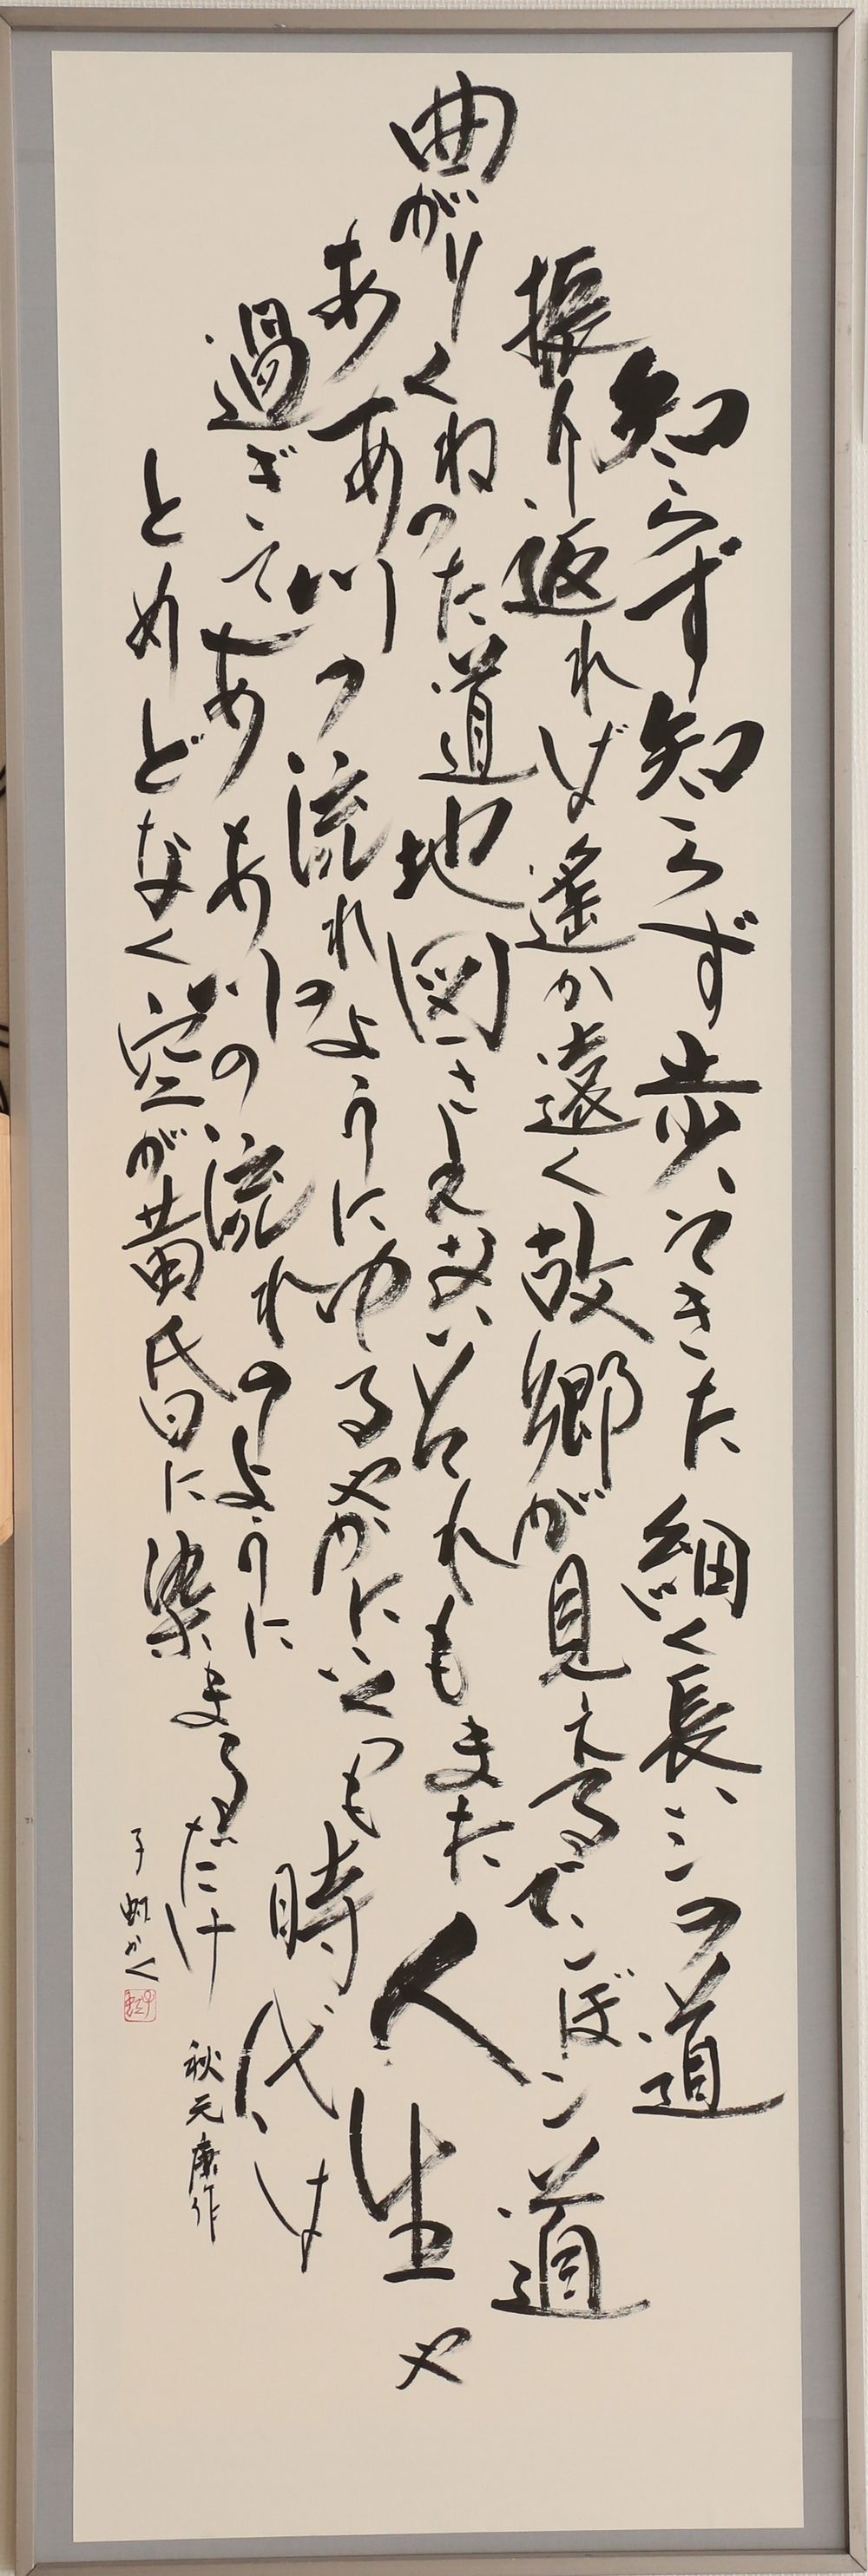 知らず知らず歩いてきた細く長いこの道
振り返れば遙か遠く故郷が見えるでこぼこ道
曲がりくねった道地図さえないそれもまた人生
ああ川の流れのようにゆるやかにいくつも時代は
過ぎてああ川の流れのように
とめどなく空が黄昏に染まるだけ
秋元康作
子虹かく